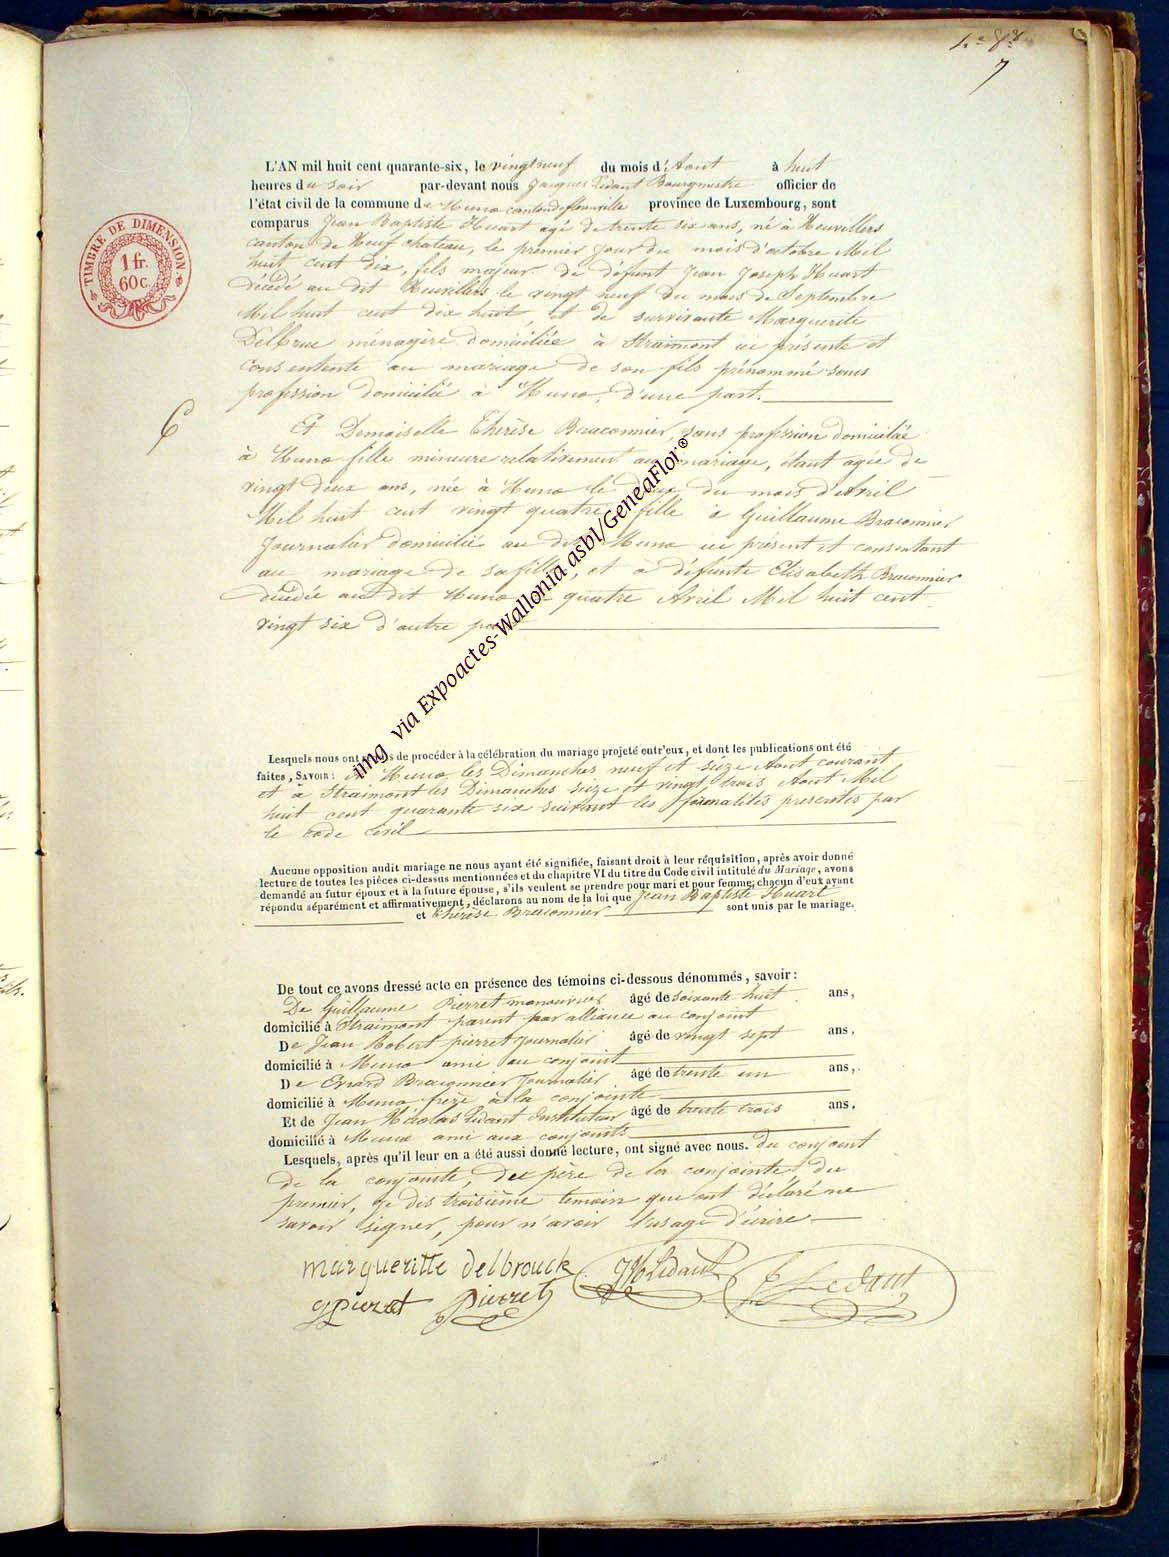 7
TIMBRE DE DIMENSION
1 fr.
60 c.
L'AN mil huit cent quarante-six, le vingt neuf du mois d'Aout à huit
heures du soir par-devant nous Jacques Lédant Bourgmestre officier de
l'état civil de la commune de Muno canton de florenville province de Luxembourg, sont
comparus Jean Baptiste Huart agé de trente six ans, né à Neuvillers
canton de Neufchateau, le premier jour du mois d'octobre Mil
huit cent dix, fils majeur de défunt Jean Joseph Huart
décédé au dit Neuvillers le vingt neuf du mois de Septembre
Mil huit cent dix huit, et de survivante Marguerite
Delbrue ménagère domiciliée à Straimont ici présente et
consentente au mariage de son fils prénommé sans
profession domicilié à Muno, d'une part.
6
Et Demoiselle Thérèse Braconnier, sans profession domiciliée
à Muno fille mineure relativement au mariage, étant agée de
vingt deux ans, née à Muno le deux du mois d'Avril
Mil huit cent vingt quatre fille à Guillaume Braconnier
Journalier domicilié au dit Muno ici présent et consentant
au mariage de sa fille, et à défunte Elisabeth Braconnier
décédée au dit Muno le quatre Avril Mil huit cent
vingt six d'autre part
Lesquels nous ont requis de procéder à la célébration du mariage projeté entr'eux, et dont les publications ont été
faites, SAVOIR : à Muno les Dimanches neuf et seize Aout courant
et à Straimont les Dimanches seize et vingt trois Aout Mil
huit cent quarante six suivant les formalités présentes par
le code civil
Aucune opposition audit mariage ne nous ayant été signifiée, faisant droit à leur réquisition, après avoir donné
lecture de toutes les pièces ci-dessus mentionnées et du chapitre VI du titre du Code civil intitulé du Mariage, avons
demandé au futur époux et à la future épouse, s'ils veulent se prendre pour mari et pour femme; chacun d'eux ayant
répondu séparément et affirmativement, déclarons au nom de la loi que Jean Baptiste Huart
et Thérèse Braconnier sont unis par le mariage.
De tout ce avons dressé acte en présence des témoins ci-dessous dénommés, savoir :
De Guillaume Pierret manouvrier âgé de soixante huit ans,
domicilié à Straimont parent par alliance au conjoint
De Jean Robert pierret Journalier âgé de vingt sept ans,
domicilié à Muno ami au conjoint
De Evrard Braconnier Journalier âgé de trente un ans,
domicilié à Muno frère à la conjointe
Et de Jean Nicolas Lédant Instituteur âgé de trente trois ans,
domicilié à Muno ami aux conjoints
Lesquels, après qu'il leur en a été aussi donné lecture, ont signé avec nous. du conjoint
de la conjointe, du père de la conjointe du
premier, je dis troisième temoin qui ont déclaré ne
savoir signer, pour n'avoir l'usage d'écrire
margueritte delbrouck JN Lédant Ledant
pierret
img via Expoactes-Wallonia asbl/GeneaFloi®